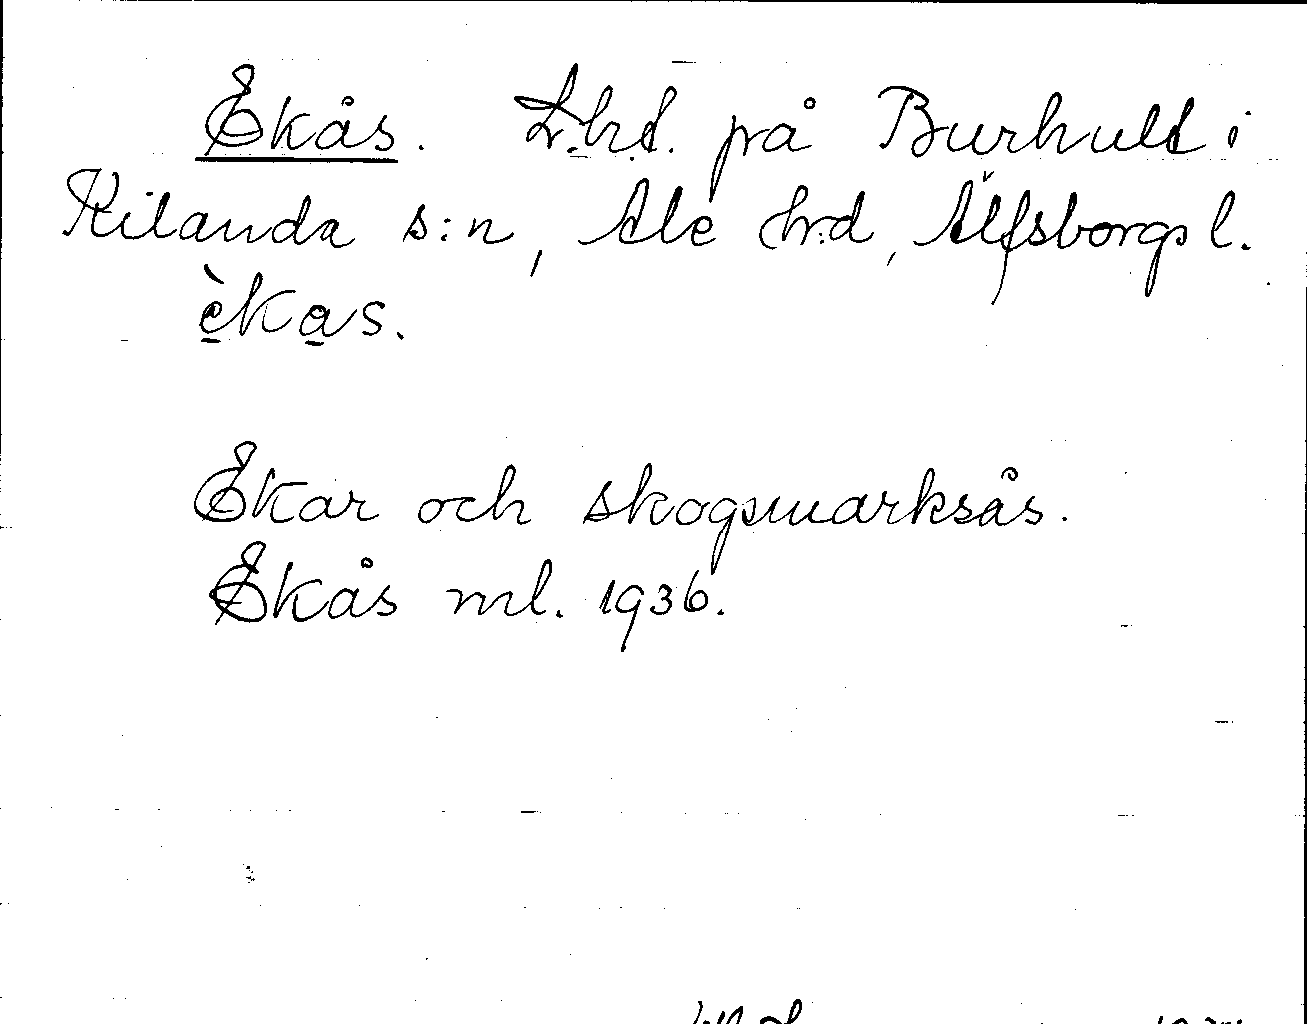 Ekås. L.h.t. på Burhult i
Kilanda s:n, Ale h:d, Älfsborgs l.
èkas.
Ekar och skogsmarksås.
Ekås ml. 1936.